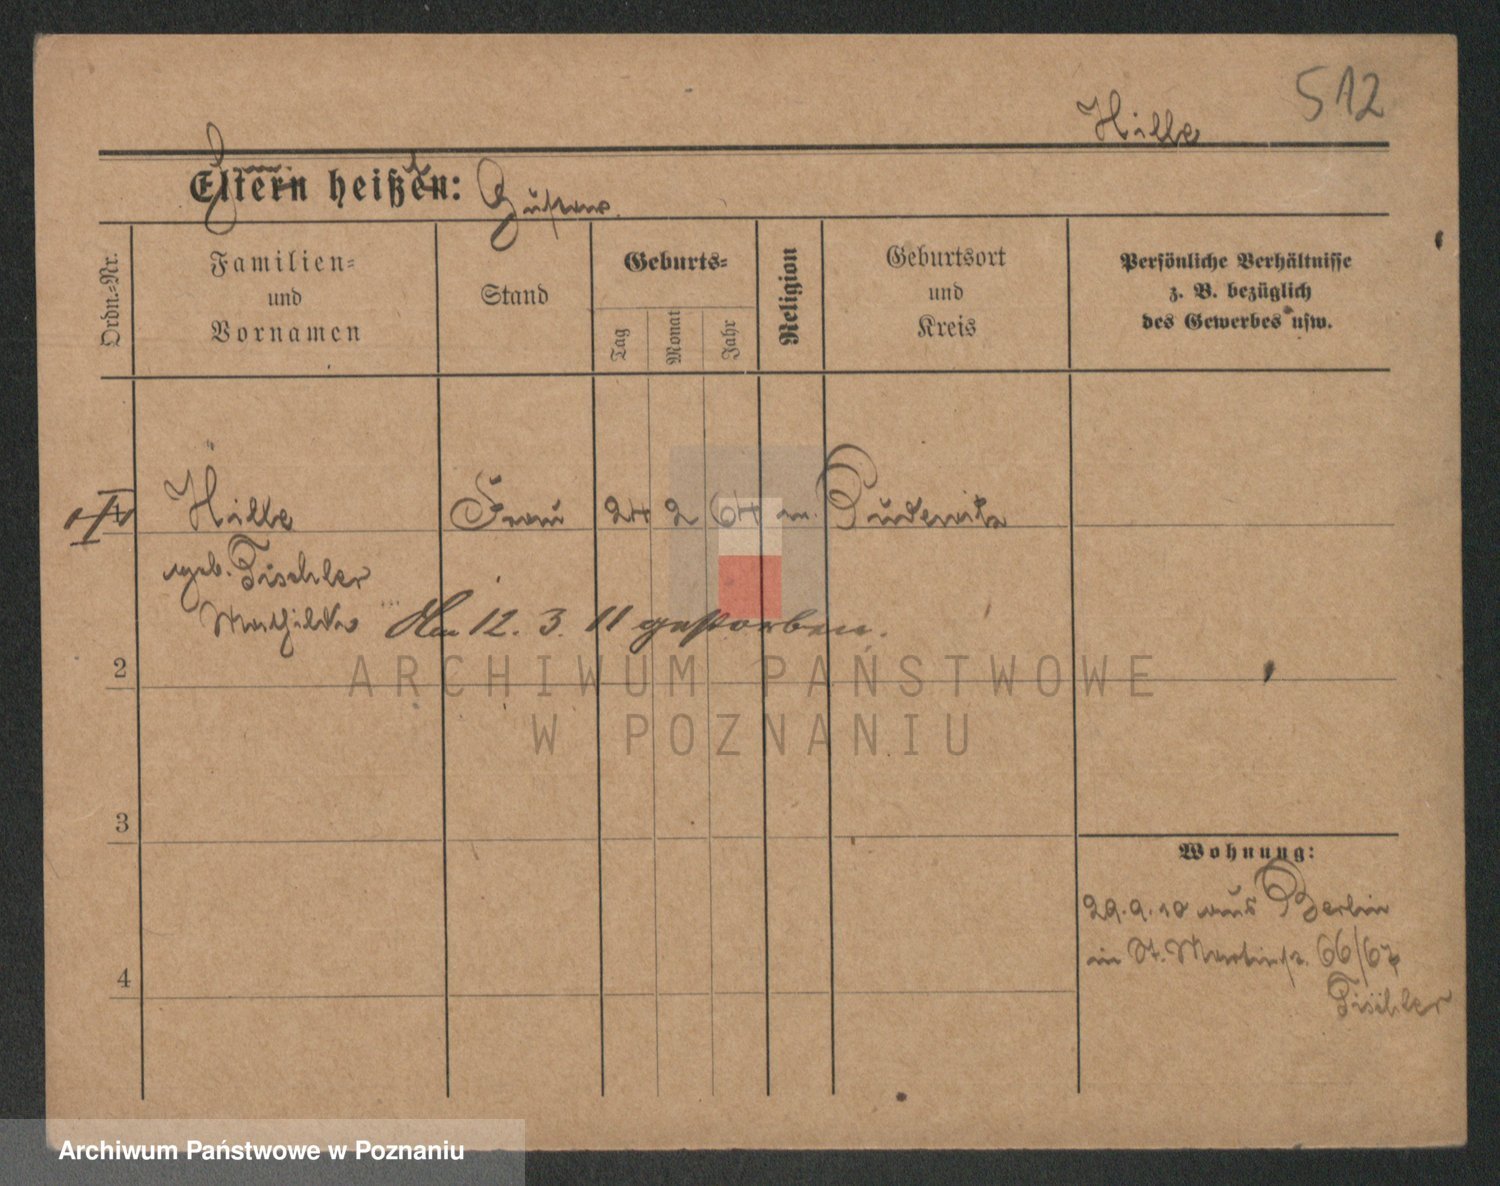 512
Hille
Eltern heißen: Gustav.
Ordn.=Nr.
Familien=
und
Vornamen
Stand
Geburts=
Tag
Monat
Jahr
Religion
Geburtsort
und
Kreis
Persönliche Verhältnisse
z. B. bezüglich
des Gewerbes usw.
1 Hille Frau 24 2 64 Pudewitz
geb. Tischler
Mathilde Am 12. 3. 11 gestorben.
2
ARCHIWUM PAŃSTWOWE
W POZNANIU
3
Wohnung:
29.9.10 aus Berlin
in St. Martinstr. 66/67
4
Tischler
Archiwum Państwowe w Poznaniu